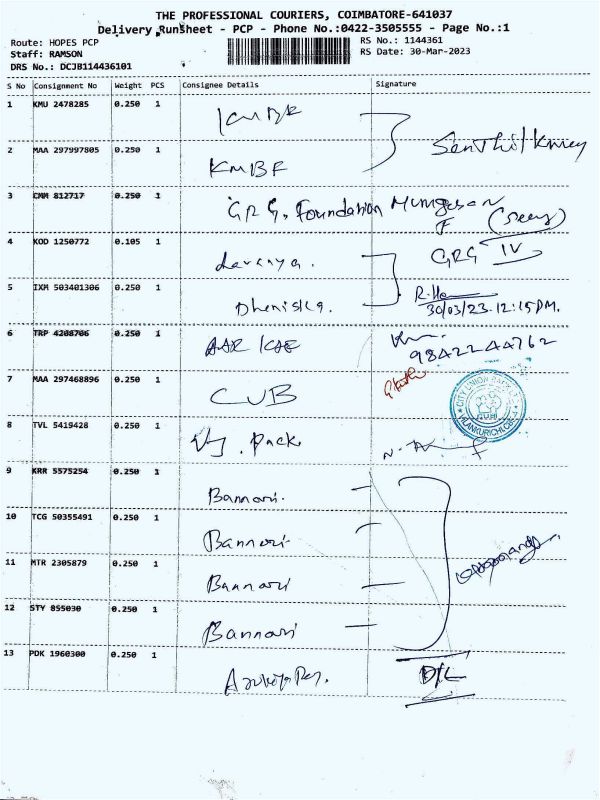 THE PROFESSIONAL COURIERS, COIMBATORE-641037
Delivery RunSheet - PCP - Phone No.:0422-3505555 - Page No.:1
Route: HOPES PCP
RS No.: 1144361
Staff: RAMSON
RS Date: 30-Mar-2023
DRS No.: DCJB114436101
S No Consignment No Weight PCS Consignee Details Signature
1 KMU 2478285 0.250 1
Senthil Kumar
2 MAA 297997805 0.250 1 KMBF
3 CMM 812717 0.250 1 GRG. Foundation
4 KOD 1250772 0.105 1 Lavanya. GRG IV
5 IXM 503401306 0.250 1 Dheniska.
30/03/23. 12:15PM.
6 TRP 4208706 0.250 1
98422 44762
7 MAA 297468896 0.250 1 CUB
CITY UNION BANK
8 TVL 5419428 0.250 1 Pack
9 KRR 5575254 0.250 1 Bannari.
10 TCG 50355491 0.250 1 Bannari
11 MTR 2305879 0.250 1 Bannari
12 STY 855030 0.250 1 Bannari
13 PDK 1960300 0.250 1 D/L